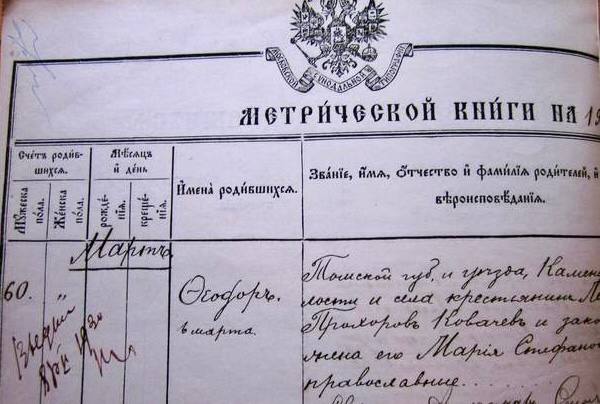 МОСКОВСКОЙ СѴНОДАЛЬНОЙ ТИПОГРАФІИ
МЕТРИЧЕСКОЙ КНИГИ НА 19
Счетъ родившихся.
Мѣсяцъ и день
Имена родившихся.
Званіе, имя, отчество и фамилія родителей, и
вѣроисповѣданія.
Мужеска пола.
Женска пола.
рожденія.
крещенія.
Мартъ
60.
„
Ѳеодоръ.
Томской губ. и уѣзда, Камен
лости и села крестьянин
6 марта.
Прохоровъ Ковачевъ и зако
жена его Марія Стефано
православные